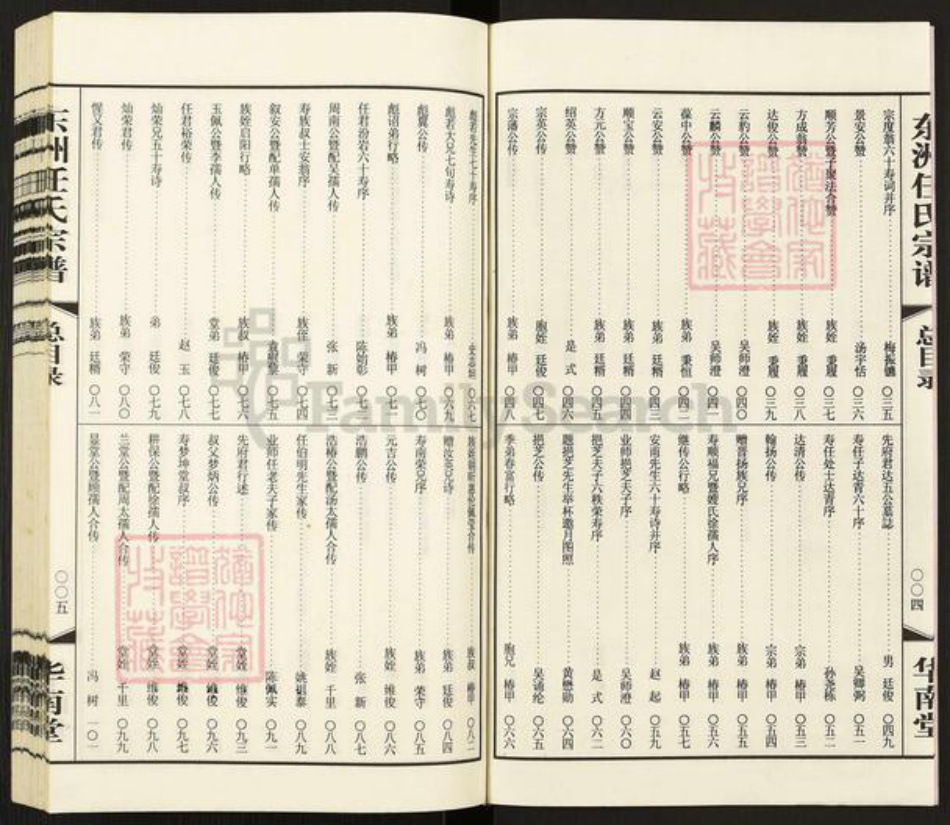 东洲任氏宗谱
总目录
〇〇四
华南堂
宗度翁六十寿词并序 梅振镳 〇三五
景安公赞 汤宗恬 〇三六
顺芳公暨子聚法合赞 族姪 秉履 〇三七
方成公赞 族姪 秉履 〇三八
达俊公赞 族姪 秉履 〇三九
云豹公赞 吴师澄 〇四〇
云麟公赞 吴师澄 〇四一
葆中公赞 族弟 秉恒 〇四二
云安公赞 族弟 廷稍 〇四三
顺宝公赞 族弟 廷稍 〇四四
方元公赞 族弟 廷稍 〇四五
绍英公赞 是式 〇四六
宗英公传 胞姪 廷俊 〇四七
宗潘公传 族弟 椿甲 〇四八
先府君达五公墓誌 男 廷俊 〇四九
寿任子达菁六十序 吴卿弼 〇五一
寿任处士达菁序 孙尧栋 〇五二
达清公传 宗弟 椿甲 〇五三
翰扬公传 宗弟 椿甲 〇五四
赠晋扬族兄序 族弟 椿甲 〇五五
寿顺福兄暨嫂氏徐孺人序 族弟 椿甲 〇五六
继传公行略 族弟 椿甲 〇五七
安甫先生六十寿诗并序 赵起 〇五九
业师挹芝夫子序 吴师澄 〇六〇
挹芝夫子六秩荣寿序 是式 〇六二
题挹芝先生举杯邀月图照 黄懋勋 〇六四
挹芝公传 吴诵纶 〇六五
季弟春富行略 胞兄 椿甲 〇六六
彪若先生七十寿序 〇六七
彪若大兄七旬寿诗 族弟 椿甲 〇六九
彪翼公传 冯树 〇七〇
彪诏弟行略 族弟 椿甲 〇七一
任君汾岩六十寿序 陈嫡彰 〇七二
周南公暨配吴孺人传 张新 〇七三
寿族叔士安翁序 族侄 荣守 〇七四
叙安公暨配单孺人传 〇七五
族姪启阳行略 族叔 椿甲 〇七六
玉佩公暨李孺人传 堂弟 廷俊 〇七七
任君裕荣传 赵玉 〇七八
灿荣兄五十寿诗 弟 廷俊 〇七九
灿荣君传 族弟 荣守 〇八〇
惺又君传 族弟 廷稍 〇八一
族叔 椿甲 〇八二
赠汝英兄诗 族弟 廷俊 〇八四
寿南荣兄序 族弟 荣守 〇八五
元吉公传 族姪 维俊 〇八六
浩鹏公传 张新 〇八七
浩椿公暨配汤太孺人传 族姪 千里 〇八八
任伯明先生家传 姚祖泰 〇八九
业师任老夫子家传 陈佩实 〇九一
先府君行述 堂姪 维俊 〇九三
叔父梦炳公传 堂姪 维俊 〇九六
寿梦坤堂叔序 堂姪 维俊 〇九七
耕保公暨配徐孺人传 堂姪 维俊 〇九八
兰堂公暨配周太孺人合传 堂姪 千里 〇九九
显堂公暨顾孺人合传 冯树 一〇一
东洲任氏宗谱
总目录
〇〇五
华南堂
FamilySearch